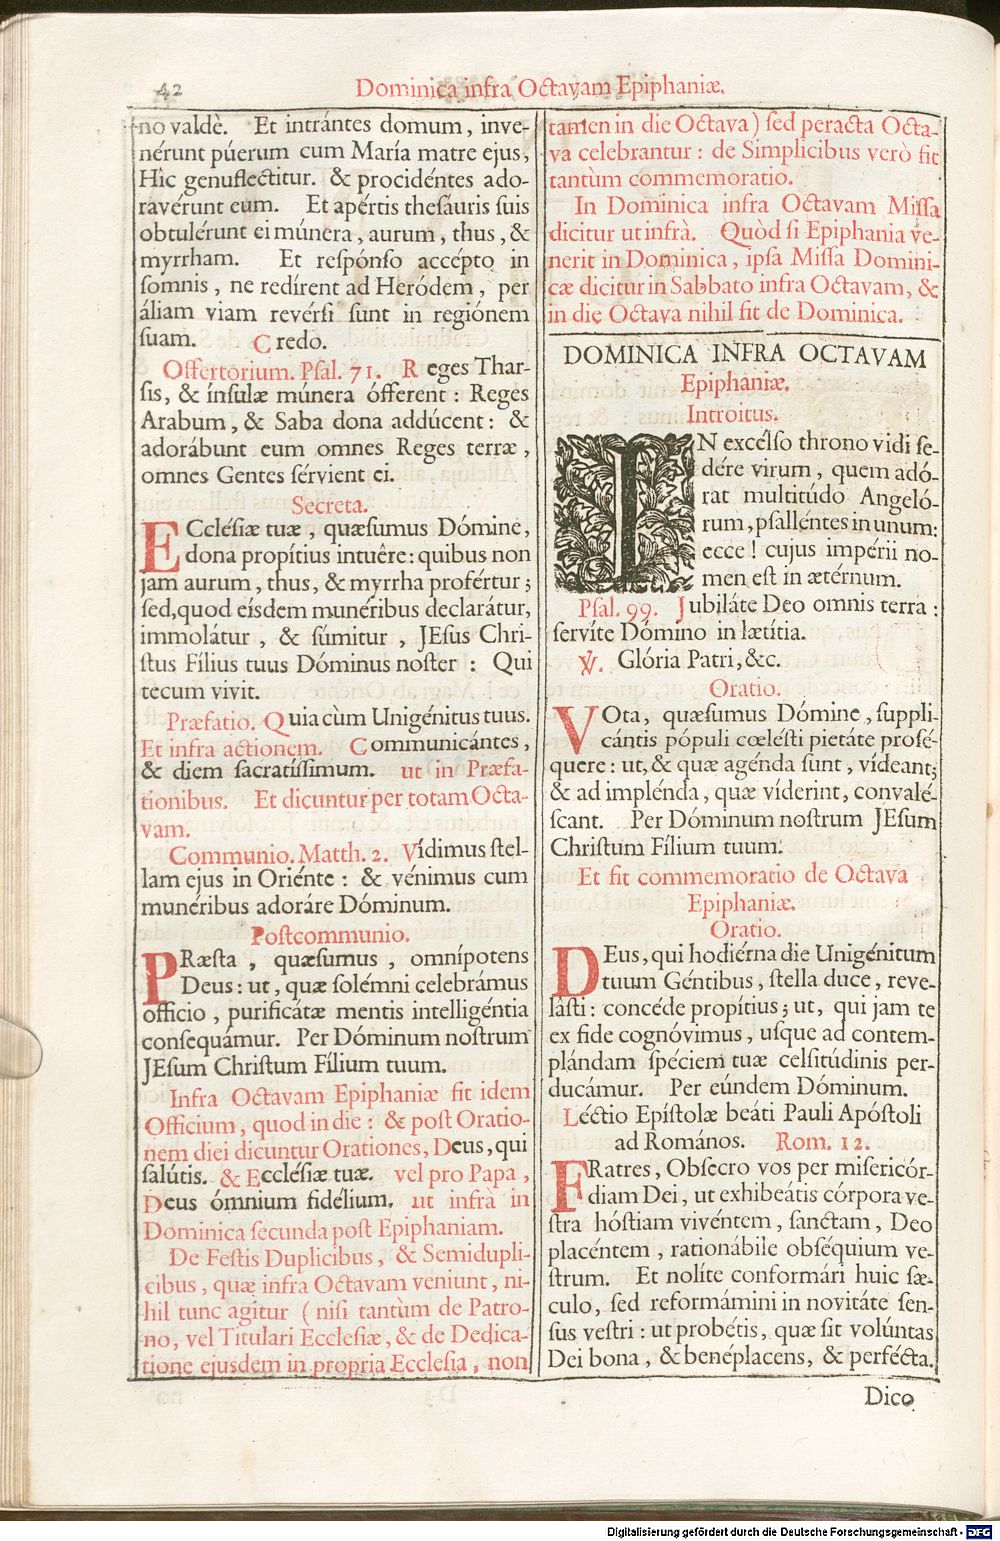 42
Dominica infra Octavam Epiphaniæ.
no valdè. Et intrántes domum, inve-
nérunt púerum cum María matre ejus,
Hìc genuflectitur. & procidéntes ado-
ravérunt eum. Et apértis theſáuris ſuis
obtulérunt ei múnera, aurum, thus, &
myrrham. Et reſpónſo accépto in
ſomnis, ne redírent ad Heródem, per
áliam viam revérſi ſunt in regiónem
ſuam. Credo.
Offertorium. Pſal. 71. Reges Thar-
ſis, & ínſulæ múnera ófferent: Reges
Arabum, & Saba dona addúcent: &
adorábunt eum omnes Reges terræ,
omnes Gentes ſérvient ei.
Secreta.
ECcléſiæ tuæ, quæſumus Dómine,
dona propítius intuêre: quibus non
jam aurum, thus, & myrrha profértur;
ſed, quod eíſdem munéribus declarátur,
immolátur, & ſúmitur, JEſus Chri-
ſtus Fílius tuus Dóminus noſter: Qui
tecum vivit.
Præfatio. Quia cùm Unigénitus tuus.
Et infra actionem. Communicántes,
& diem ſacratíſſimum. ut in Præfa-
tionibus. Et dicuntur per totam Octa-
vam.
Communio. Matth. 2. Vídimus ſtel-
lam ejus in Oriénte: & vénimus cum
munéribus adoráre Dóminum.
Poſtcommunio.
PRæſta, quæſumus, omnípotens
Deus: ut, quæ ſolémni celebrámus
officio, purificátæ mentis intelligéntia
conſequámur. Per Dóminum noſtrum
JEſum Chriſtum Fílium tuum.
Infra Octavam Epiphaniæ fit idem
Officium, quod in die: & poſt Oratio-
nem diei dicuntur Orationes, Deus, qui
ſalútis. & Eccléſiæ tuæ. vel pro Papa,
Deus ómnium fidélium. ut infrà in
Dominica ſecunda poſt Epiphaniam.
De Feſtis Duplicibus, & Semidupli-
cibus, quæ infra Octavam veniunt, ni-
hil tunc agitur (niſi tantùm de Patro-
no, vel Titulari Eccleſiæ, & de Dedica-
tione ejusdem in propria Eccleſia, non
tamen in die Octava) ſed peracta Octa-
va celebrantur: de Simplicibus verò fit
tantùm commemoratio.
In Dominica infra Octavam Miſſa
dicitur ut infrà. Quòd ſi Epiphania ve-
nerit in Dominica, ipſa Miſſa Domini-
cæ dicitur in Sabbato infra Octavam, &
in die Octava nihil fit de Dominica.
DOMINICA INFRA OCTAVAM
Epiphaniæ.
Introitus.
IN excélſo throno vidi ſe-
dére virum, quem adó-
rat multitúdo Angeló-
rum, pſalléntes in unum:
ecce! cujus impérii no-
men eſt in ætérnum.
Pſal. 99. Jubiláte Deo omnis terra:
ſervíte Dómino in lætítia.
℣. Glória Patri, &c.
Oratio.
VOta, quæſumus Dómine, ſuppli-
cántis pópuli cœléſti pietáte proſé-
quere: ut, & quæ agénda ſunt, vídeant;
& ad implénda, quæ víderint, convalé-
ſcant. Per Dóminum noſtrum JEſum
Chriſtum Fílium tuum.
Et fit commemoratio de Octava
Epiphaniæ.
Oratio.
DEus, qui hodiérna die Unigénitum
tuum Géntibus, ſtella duce, reve-
láſti: concéde propítius; ut, qui jam te
ex fide cognóvimus, uſque ad contem-
plándam ſpéciem tuæ celſitúdinis per-
ducámur. Per eúndem Dóminum.
Léctio Epíſtolæ beáti Pauli Apóſtoli
ad Romános. Rom. 12.
FRatres, Obſecro vos per miſericór-
diam Dei, ut exhibeátis córpora ve-
ſtra hóſtiam vivéntem, ſanctam, Deo
placéntem, rationábile obſéquium ve-
ſtrum. Et nolíte conformári huic ſæ-
culo, ſed reformámini in novitáte ſen-
ſus veſtri: ut probétis, quæ ſit volúntas
Dei bona, & benéplacens, & perfécta.
Dico
Digitalisierung gefördert durch die Deutsche Forschungsgemeinschaft - DFG